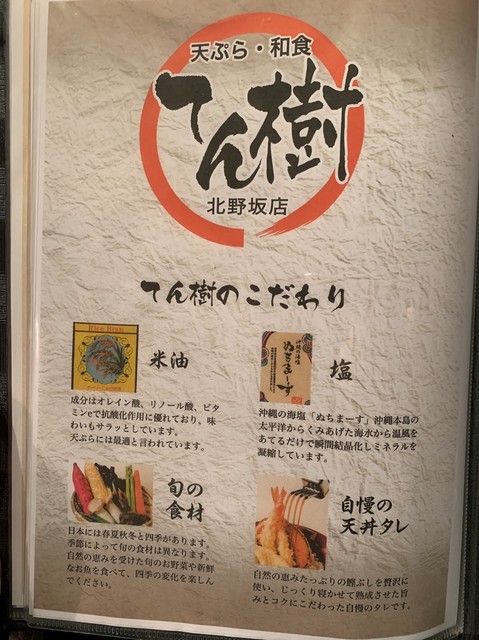 天ぷら・和食
てん樹
北野坂店
てん樹のこだわり
Rice Bran
米油
成分はオレイン酸、リノール酸、ビタ
ミンeで抗酸化作用に優れており、味
わいもサラッとしています。
天ぷらには最適と言われています。
沖縄の海塩
ぬちまーす
塩
沖縄の海塩「ぬちまーす」沖縄本島の
太平洋からくみあげた海水から温風を
あてるだけで瞬間結晶化しミネラルを
凝縮しています。
旬の
食材
日本には春夏秋冬と四季があります。
季節によって旬の食材は異なります。
自然の恵みを受けた旬のお野菜や新鮮
なお魚を食べて、四季の変化を楽しん
でください。
自慢の
天丼タレ
自然の恵みたっぷりの鰹ぶしを贅沢に
使い、じっくり寝かせて熟成させた旨
みとコクにこだわった自慢のタレです。